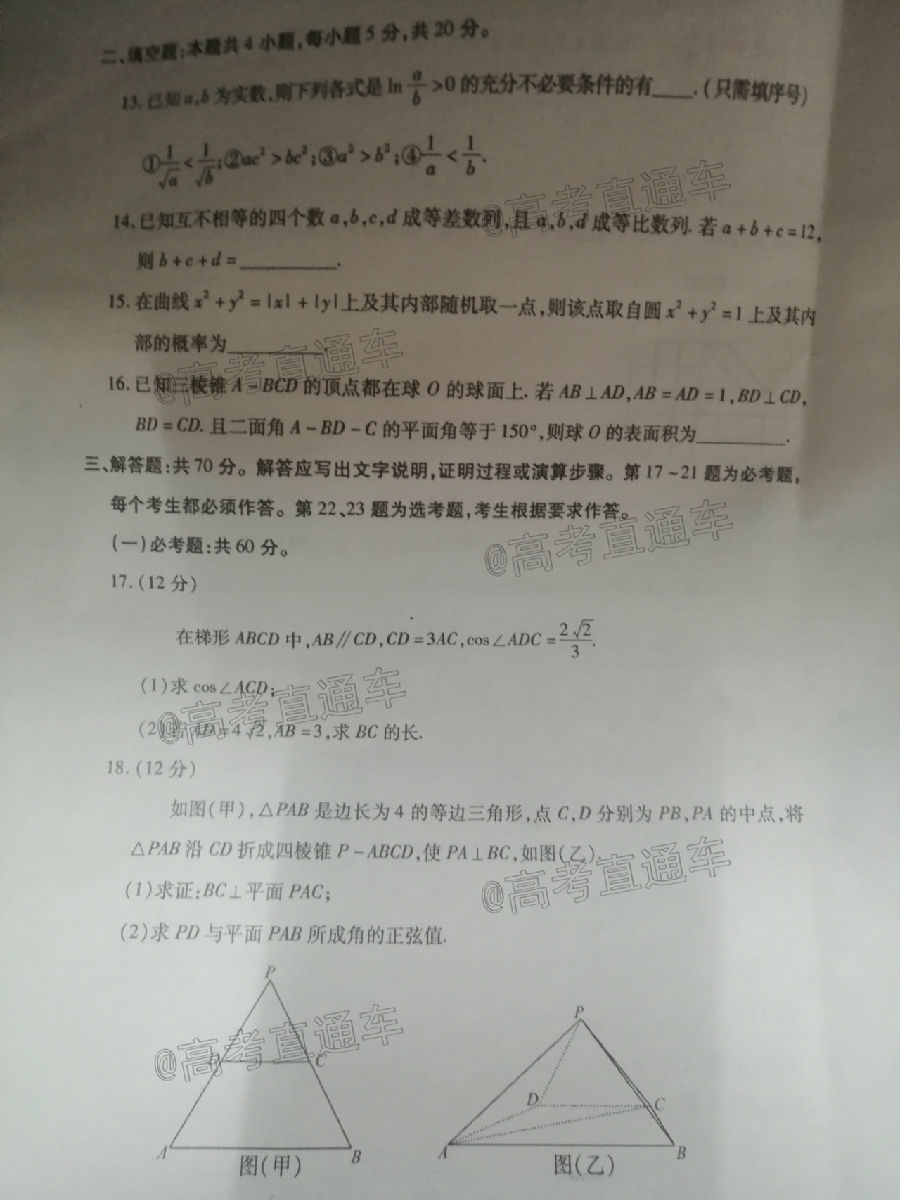 二、填空题:本题共4小题,每小题5分,共20分。
13.已知a,b为实数,则下列各式是ln a/b >0的充分不必要条件的有____.(只需填序号)
①1/√a<1/√b;②ac²>bc²;③a²>b²;④1/a<1/b.
14.已知互不相等的四个数a,b,c,d成等差数列,且a,b,d成等比数列.若a+b+c=12,
则b+c+d=________.
15.在曲线x²+y²=|x|+|y|上及其内部随机取一点,则该点取自圆x²+y²=1上及其内
部的概率为________.
16.已知三棱锥A-BCD的顶点都在球O的球面上.若AB⊥AD,AB=AD=1,BD⊥CD,
BD=CD.且二面角A-BD-C的平面角等于150°,则球O的表面积为________.
三、解答题:共70分。解答应写出文字说明,证明过程或演算步骤。第17~21题为必考题,
每个考生都必须作答。第22、23题为选考题,考生根据要求作答。
(一)必考题:共60分。
17.(12分)
在梯形ABCD中,AB∥CD,CD=3AC,cos∠ADC=2√2/3.
(1)求cos∠ACD;
(2)若AD=4√2,AB=3,求BC的长.
18.(12分)
如图(甲),△PAB是边长为4的等边三角形,点C,D分别为PB,PA的中点,将
△PAB沿CD折成四棱锥P-ABCD,使PA⊥BC,如图(乙)
(1)求证:BC⊥平面PAC;
(2)求PD与平面PAB所成角的正弦值.
P
D C
A B
图(甲)
P
D
C
A B
图(乙)
@高考直通车
@高考直通车
@高考直通车
@高考直通车
@高考直通车
@高考直通车